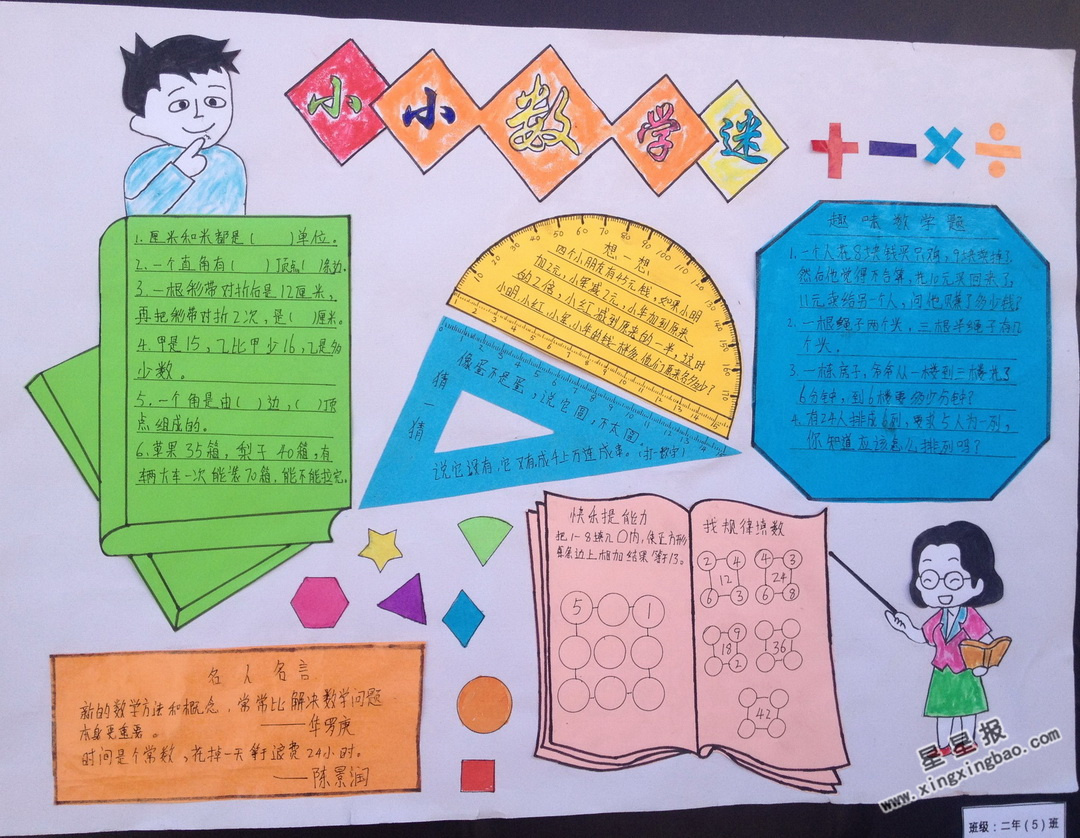 小小数学迷
+ - × ÷
1.厘米和米都是(  )单位。
2.一个直角有(  )顶点(  )条边。
3.一根彩带对折后是12厘米,
再把彩带对折2次,是(  )厘米。
4.甲是15,乙比甲少16,乙是多
少数。
5.一个角是由(  )边,(  )顶
点组成的。
6.苹果35箱,梨子40箱,有
辆大车一次能装70箱,能不能拉完。
想一想
四个小朋友有45元钱,如果小明
加2元,小星减2元,小华加到原来
的2倍,小红减到原来的一半,这时
小明,小红,小星,小华的钱一样多,他们原来各多少?
猜一猜
像蛋不是蛋,说它圆,不大圆。
说它没有,它又有,成千上万连成串。(打一数字)
趣味数学题
1.一个人花8块钱买只鸡,9块卖掉了,
然后他觉得不合算,花10元买回来了,
11元卖给另一个人,问他赚了多少钱?
2.一根绳子两个头,三根半绳子有几
个头。
3.一栋房子,爷爷从一楼到三楼花了
6分钟,到6楼要多少分钟?
4.有24人排成6列,要求5人为一列,
你知道应该怎么排列吗?
快乐提能力
把1-8填入○内,使正方形
每条边上相加结果等于13。
5 1
找规律填数
2 4
12
6 3
4 3
24
6 8
9
18
2
36
42
名人名言
新的数学方法和概念,常常比解决数学问题
本身更重要。
——华罗庚
时间是个常数,花掉一天等于浪费24小时。
——陈景润
星星报
www.xingxingbao.com
班级:二年(5)班